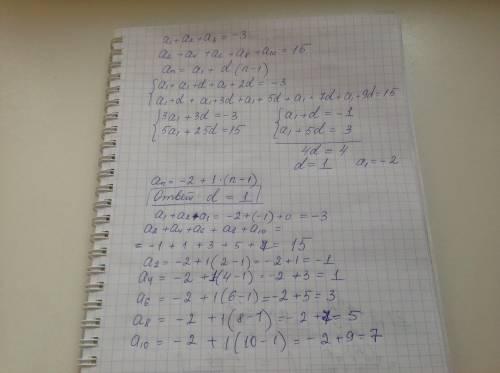 a₁ + a₂ + a₃ = -3
a₂ + a₄ + a₆ + a₈ + a₁₀ = 15
aₙ = a₁ + d (n-1)
{ a₁ + a₁ + d + a₁ + 2d = -3
a₁ + d + a₁ + 3d + a₁ + 5d + a₁ + 7d + a₁ + 9d = 15
{ 3a₁ + 3d = -3 { a₁ + d = -1
5a₁ + 25d = 15 a₁ + 5d = 3
4d = 4
d = 1 a₁ = -2
aₙ = -2 + 1 · (n-1)
Ответ: d = 1
a₁ + a₂ + a₁ = -2 + (-1) + 0 = -3
a₂ + a₄ + a₆ + a₈ + a₁₀ =
= -1 + 1 + 3 + 5 + 7 = 15
a₂ = -2 + 1(2-1) = -2 + 1 = -1
a₄ = -2 + 1(4-1) = -2 + 3 = 1
a₆ = -2 + 1(6-1) = -2 + 5 = 3
a₈ = -2 + 1(8-1) = -2 + 7 = 5
a₁₀ = -2 + 1(10-1) = -2 + 9 = 7